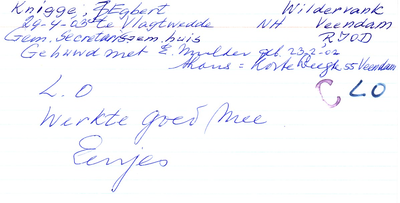 Knigge, Egbert Wildervank
29-4-03 te Vlagtwedde NH Veendam
Gem. Secretaris gem. huis RYOD
Gehuwd met E. Mulder geb. 23-2-02
Thans = Korte 55 Veendam
C LO
L.O
Werkte goed mee
Eenjes